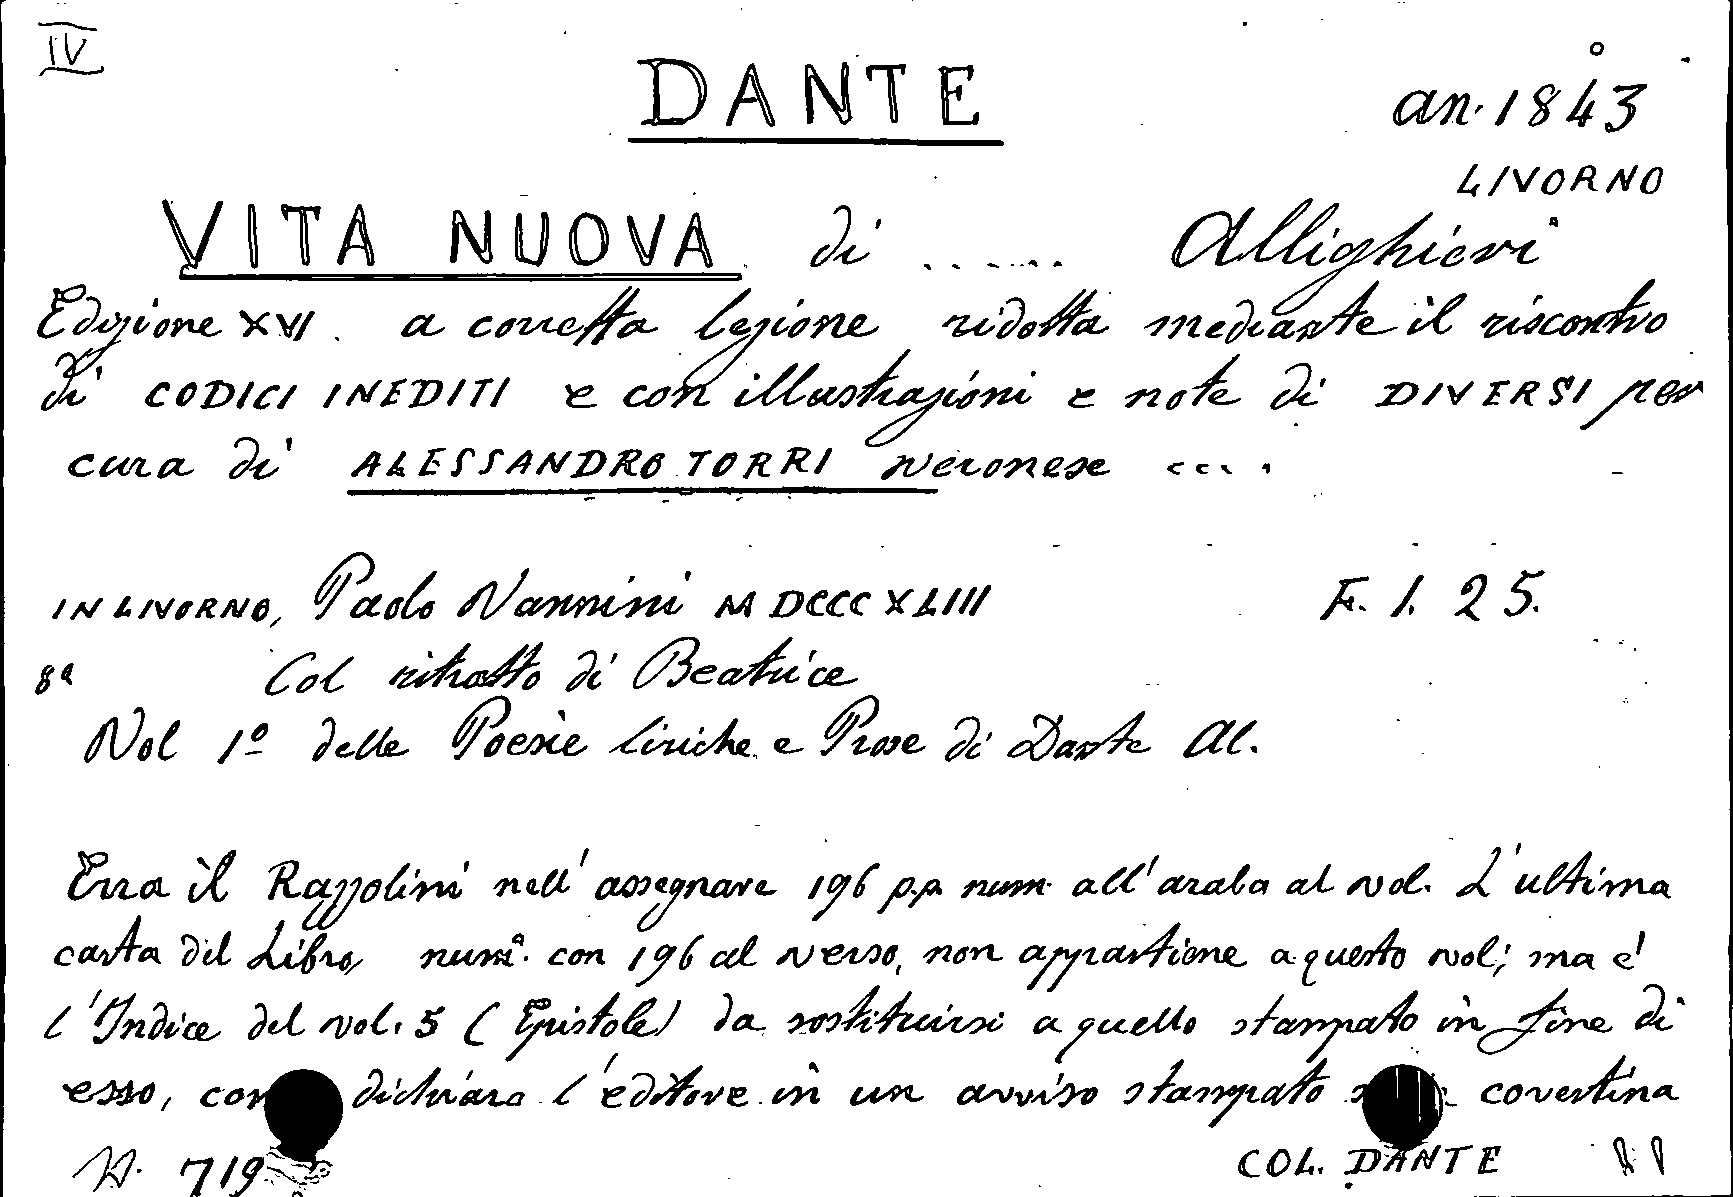 IV
DANTE
an. 1843
LIVORNO
VITA NUOVA di ...... Allighieri
Edizione XVI. a corretta lezione ridotta mediante il riscontro
di CODICI INEDITI e con illustrazioni e note di DIVERSI per
cura di ALESSANDRO TORRI veronese ....
IN LIVORNO, Paolo Vannini MDCCCXLIII F. I. 25.
8º Col ritratto di Beatrice
Vol 1º delle Poesie liriche e Prose di Dante Al.
Erra il Razzolini nell' assegnare 196 p.p. num. all'araba al vol. L'ultima
carta del Libro, num. con 196 al verso, non appartiene a questo vol; ma è
l'Indice del vol. 5 (Epistole) da sostituirsi a quello stampato in fine di
esso, dichiara l'editore in un avviso stampato covertina
N. 719
COL. DANTE